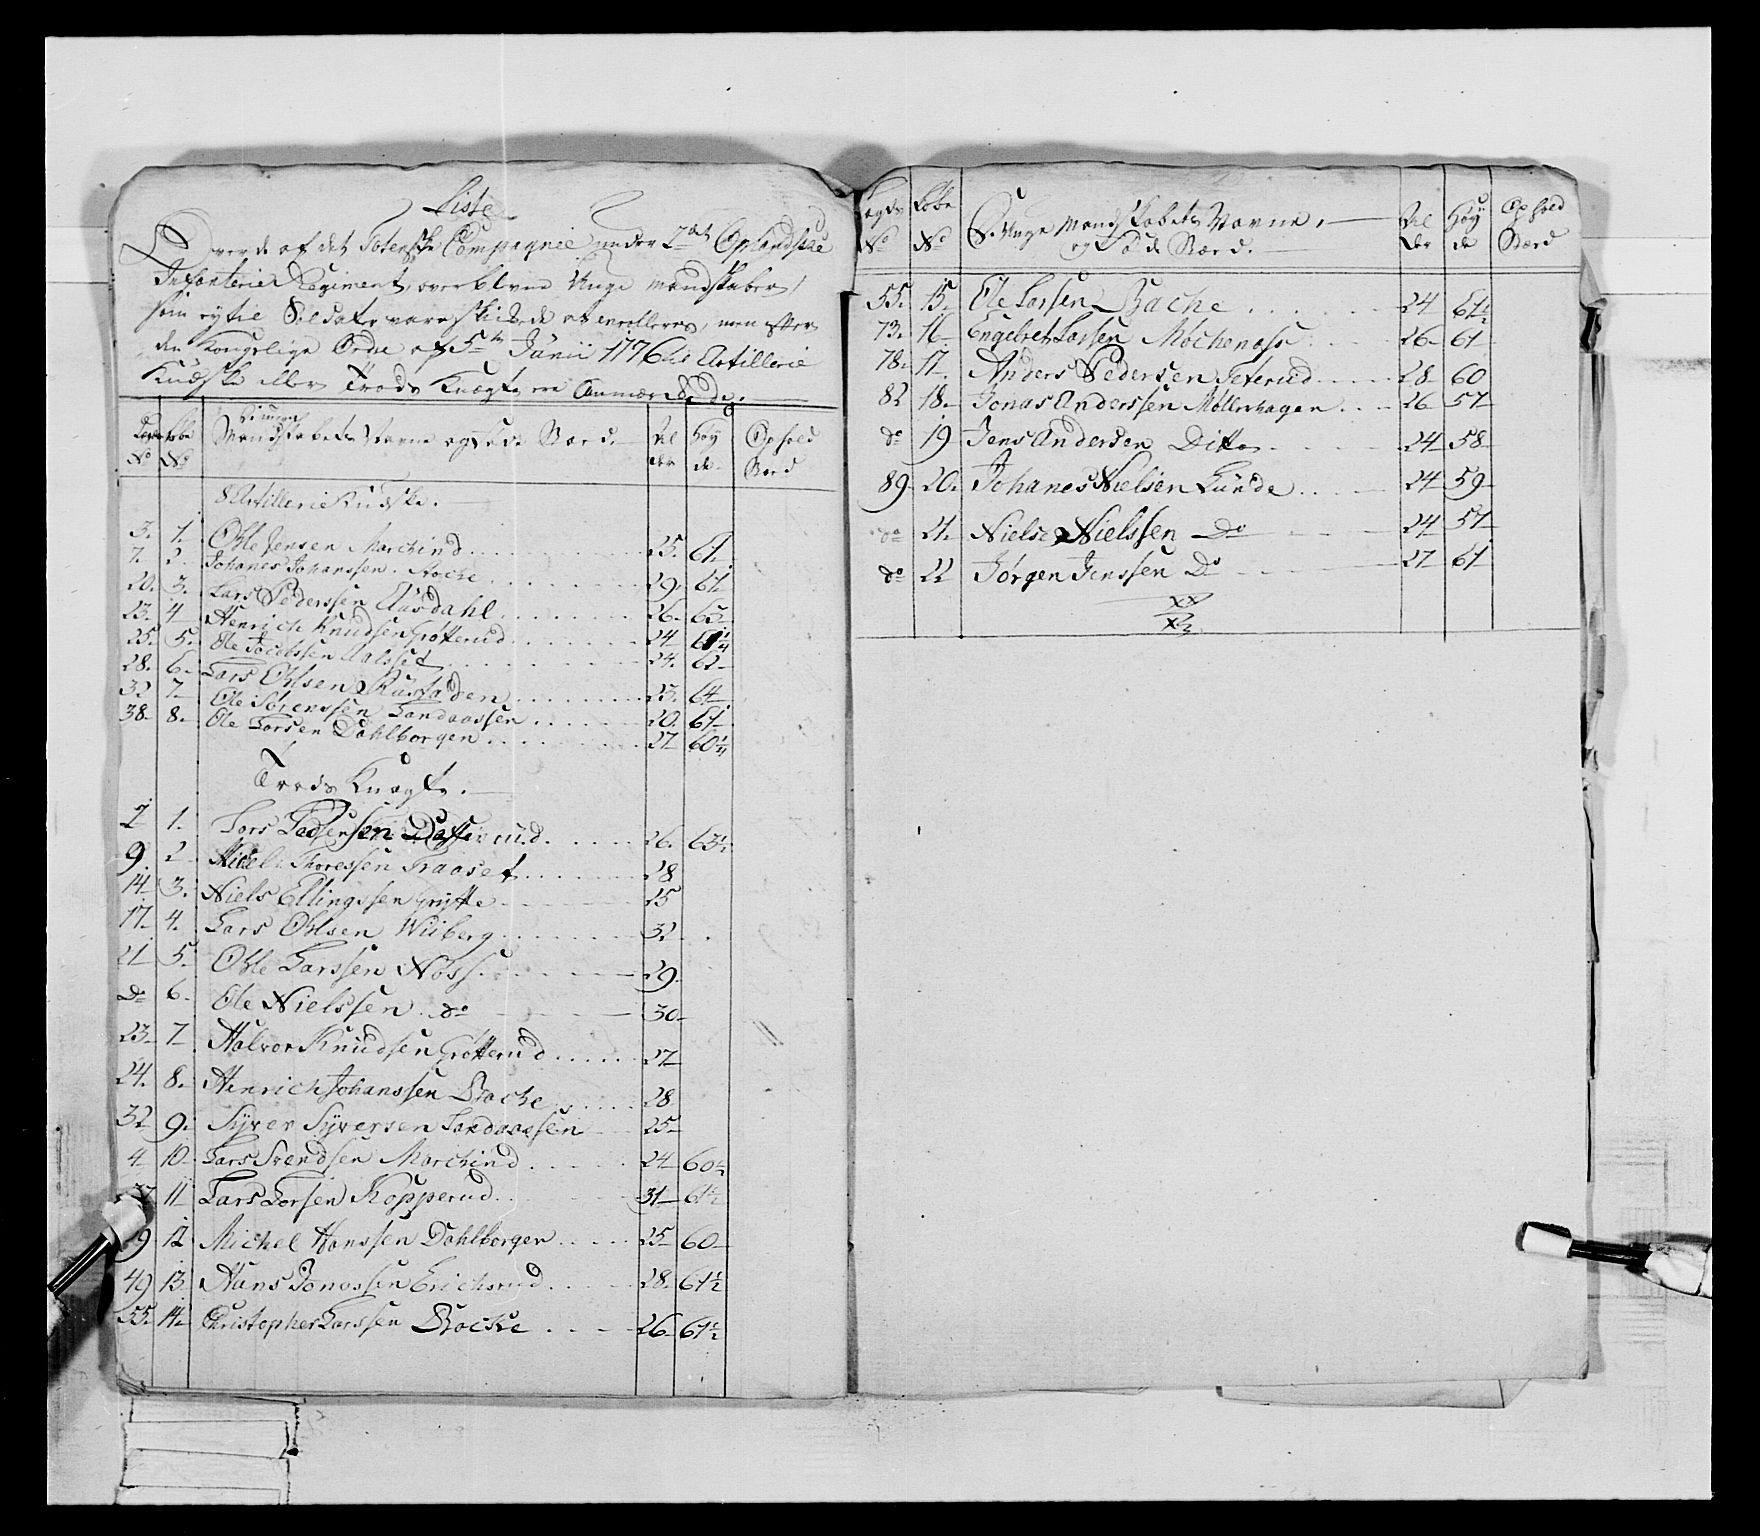 Liste
Over de af det Totenske Compagnie under 2det Oplandske
Infanterie Regiment, overblevne Unge Mandskaber,
som ey til Soldater vare skikkede at enrolleres, men efter
den Kongelige Ordre af 5te Junii 1776 til Artillerie
Kudske eller Trods Knægte ere
Lægds No Løbe No Unge Mandskabets Navne og Føde Stæd Al der Høy de Ophold Stæd
Artillerie Kudske.
3. 1. Ohle Jensen Marchind 25. 61.
7. 2. Johanes Johanssen 29. 61
20. 3. Lars Pederssen Aasdahl 26. 63
23. 4 Henrich Knudsen Grøtterud 24 61 1/4
25. 5. Ole Jacobssen Aalset 24. 62
28. 6. Lars Ohlsen Rustaden 23. 64
32 7. Ole Sørenssen Landaassen 20. 61
38. 8. Ole Larsen Dahlborgen 27 60 1/4
Trods Knægte.
2 1. Lars 26. 63 1/2
9. 2 Thoressen Fraaset 28
14. 3. Niels Ellingssen Grytte 25
17. 4. Lars Ohlsen Wiiberg 32
21 5. Ohle Larssen Nøss 29.
Do 6. Ole Nielssen do 30
23. 7 Halvor Knudsen Grøtterud 27
24. 8. Henrich Johanssen Backe 28
32 9. Syver Syversen Landaassen 25
4 10 Lars Svendsen Marchind 24 60 1/2
11 Lars Larsen Kopperud 31 61 1/2
9 12 Michel Hanssen Dahlborgen 25 60
49 13. Hans Jonassen Erichsrud 28. 61 1/2
55. 14. Christopher Larssen Backe 26 61 1/2
Lægds No Løbe No Unge Mandskabets Navne og Føde Stæd. Al der Høy de Ophold Stæd
55. 15. Ole Larsen Bache 24 61 1/2
73. 16 Engebret Larsen 26 61
78. 17. Anders Pedersen Seterud 28 60
82 18. Jonas Anderssen Møllerhagen 26 57
do 19 Jens Andersen Ditto 24 58
89. 20. Johanes Nielsen Lunde 24 59
do 21. Niels Nielssen Do 24 57
do 22 Jørgen Jenssen Do 27 61